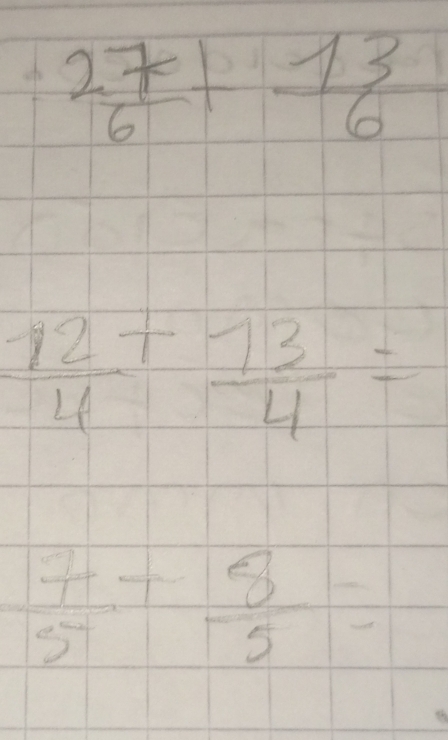 27/6 + 13/6
12/4 + 13/4 =
7/5 + 8/5 =